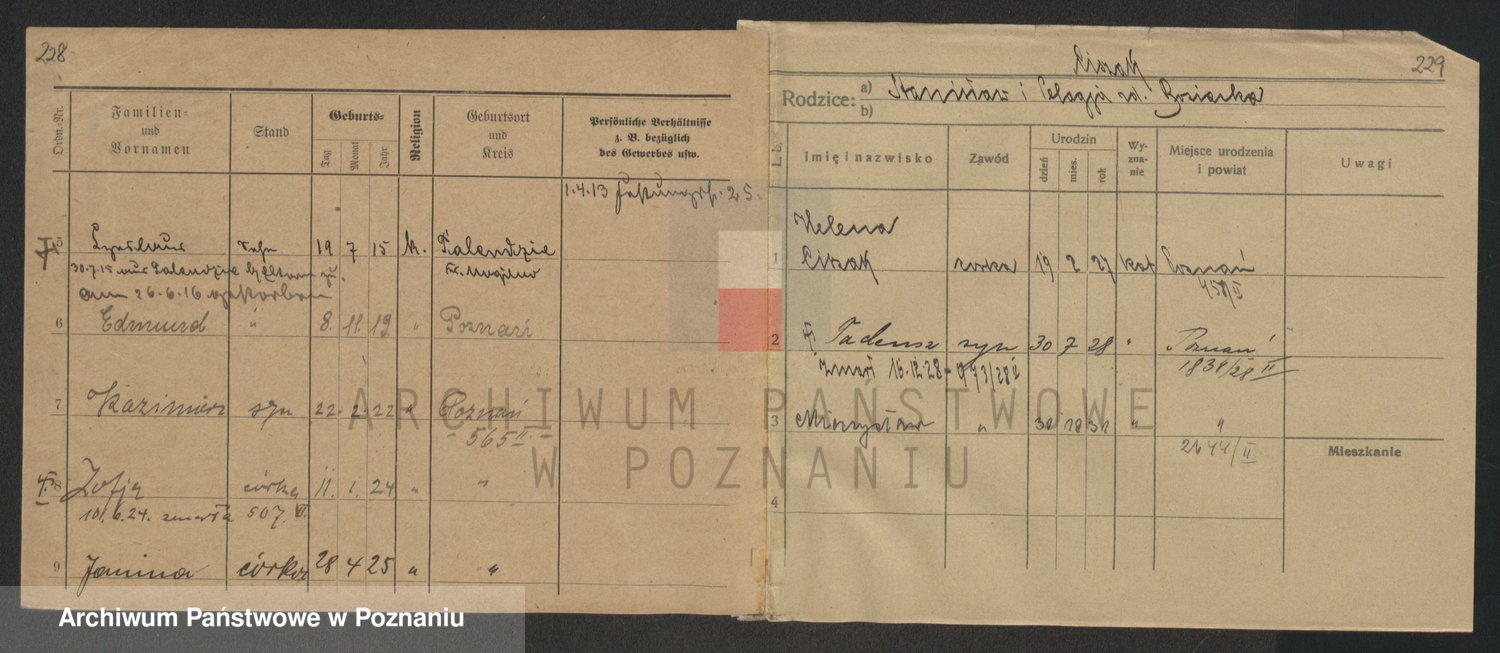 228
Ordn.-Nr.
Familien-
und
Vornamen
Stand
Geburts-
Tag
Monat
Jahr
Religion
Geburtsort
und
Kreis
Persönliche Verhältnisse
z. B. bezüglich
des Gewerbes usw.
1.4.13 25.
5 Sohn 19 7 15 k. Palendzie
30.7.15 aus Palendzie zu. Kr. Mogilno
am 26.6.16 verstorben
6 Edmund " 8. 11. 19 " Poznań
7 Kazimierz syn 22. 2. 22 " Poznań
- 565 II -
8 Zofja córka 11. 1. 24 " "
10.6.24. zmarła 507. II.
9 Janina córka 28 4 25 " "
Ciszak
229
Rodzice: a) Stanisław i Pelagja
b)
L. b.
Imię i nazwisko
Zawód
Urodzin
dzień
mies.
rok
Wy-
zna-
nie
Miejsce urodzenia
i powiat
Uwagi
Helena
1 Ciszak córka 19 2 27 kat Poznań
458/II
2 Tadeusz syn 30 7 28 " Poznań
Zmarł 15.12.28 - 973/28 II 1838/28 II
3 Mieczysław " 31 10 31 " "
2644/II
Mieszkanie
4
ARCHIWUM PAŃSTWOWE
W POZNANIU
Archiwum Państwowe w Poznaniu